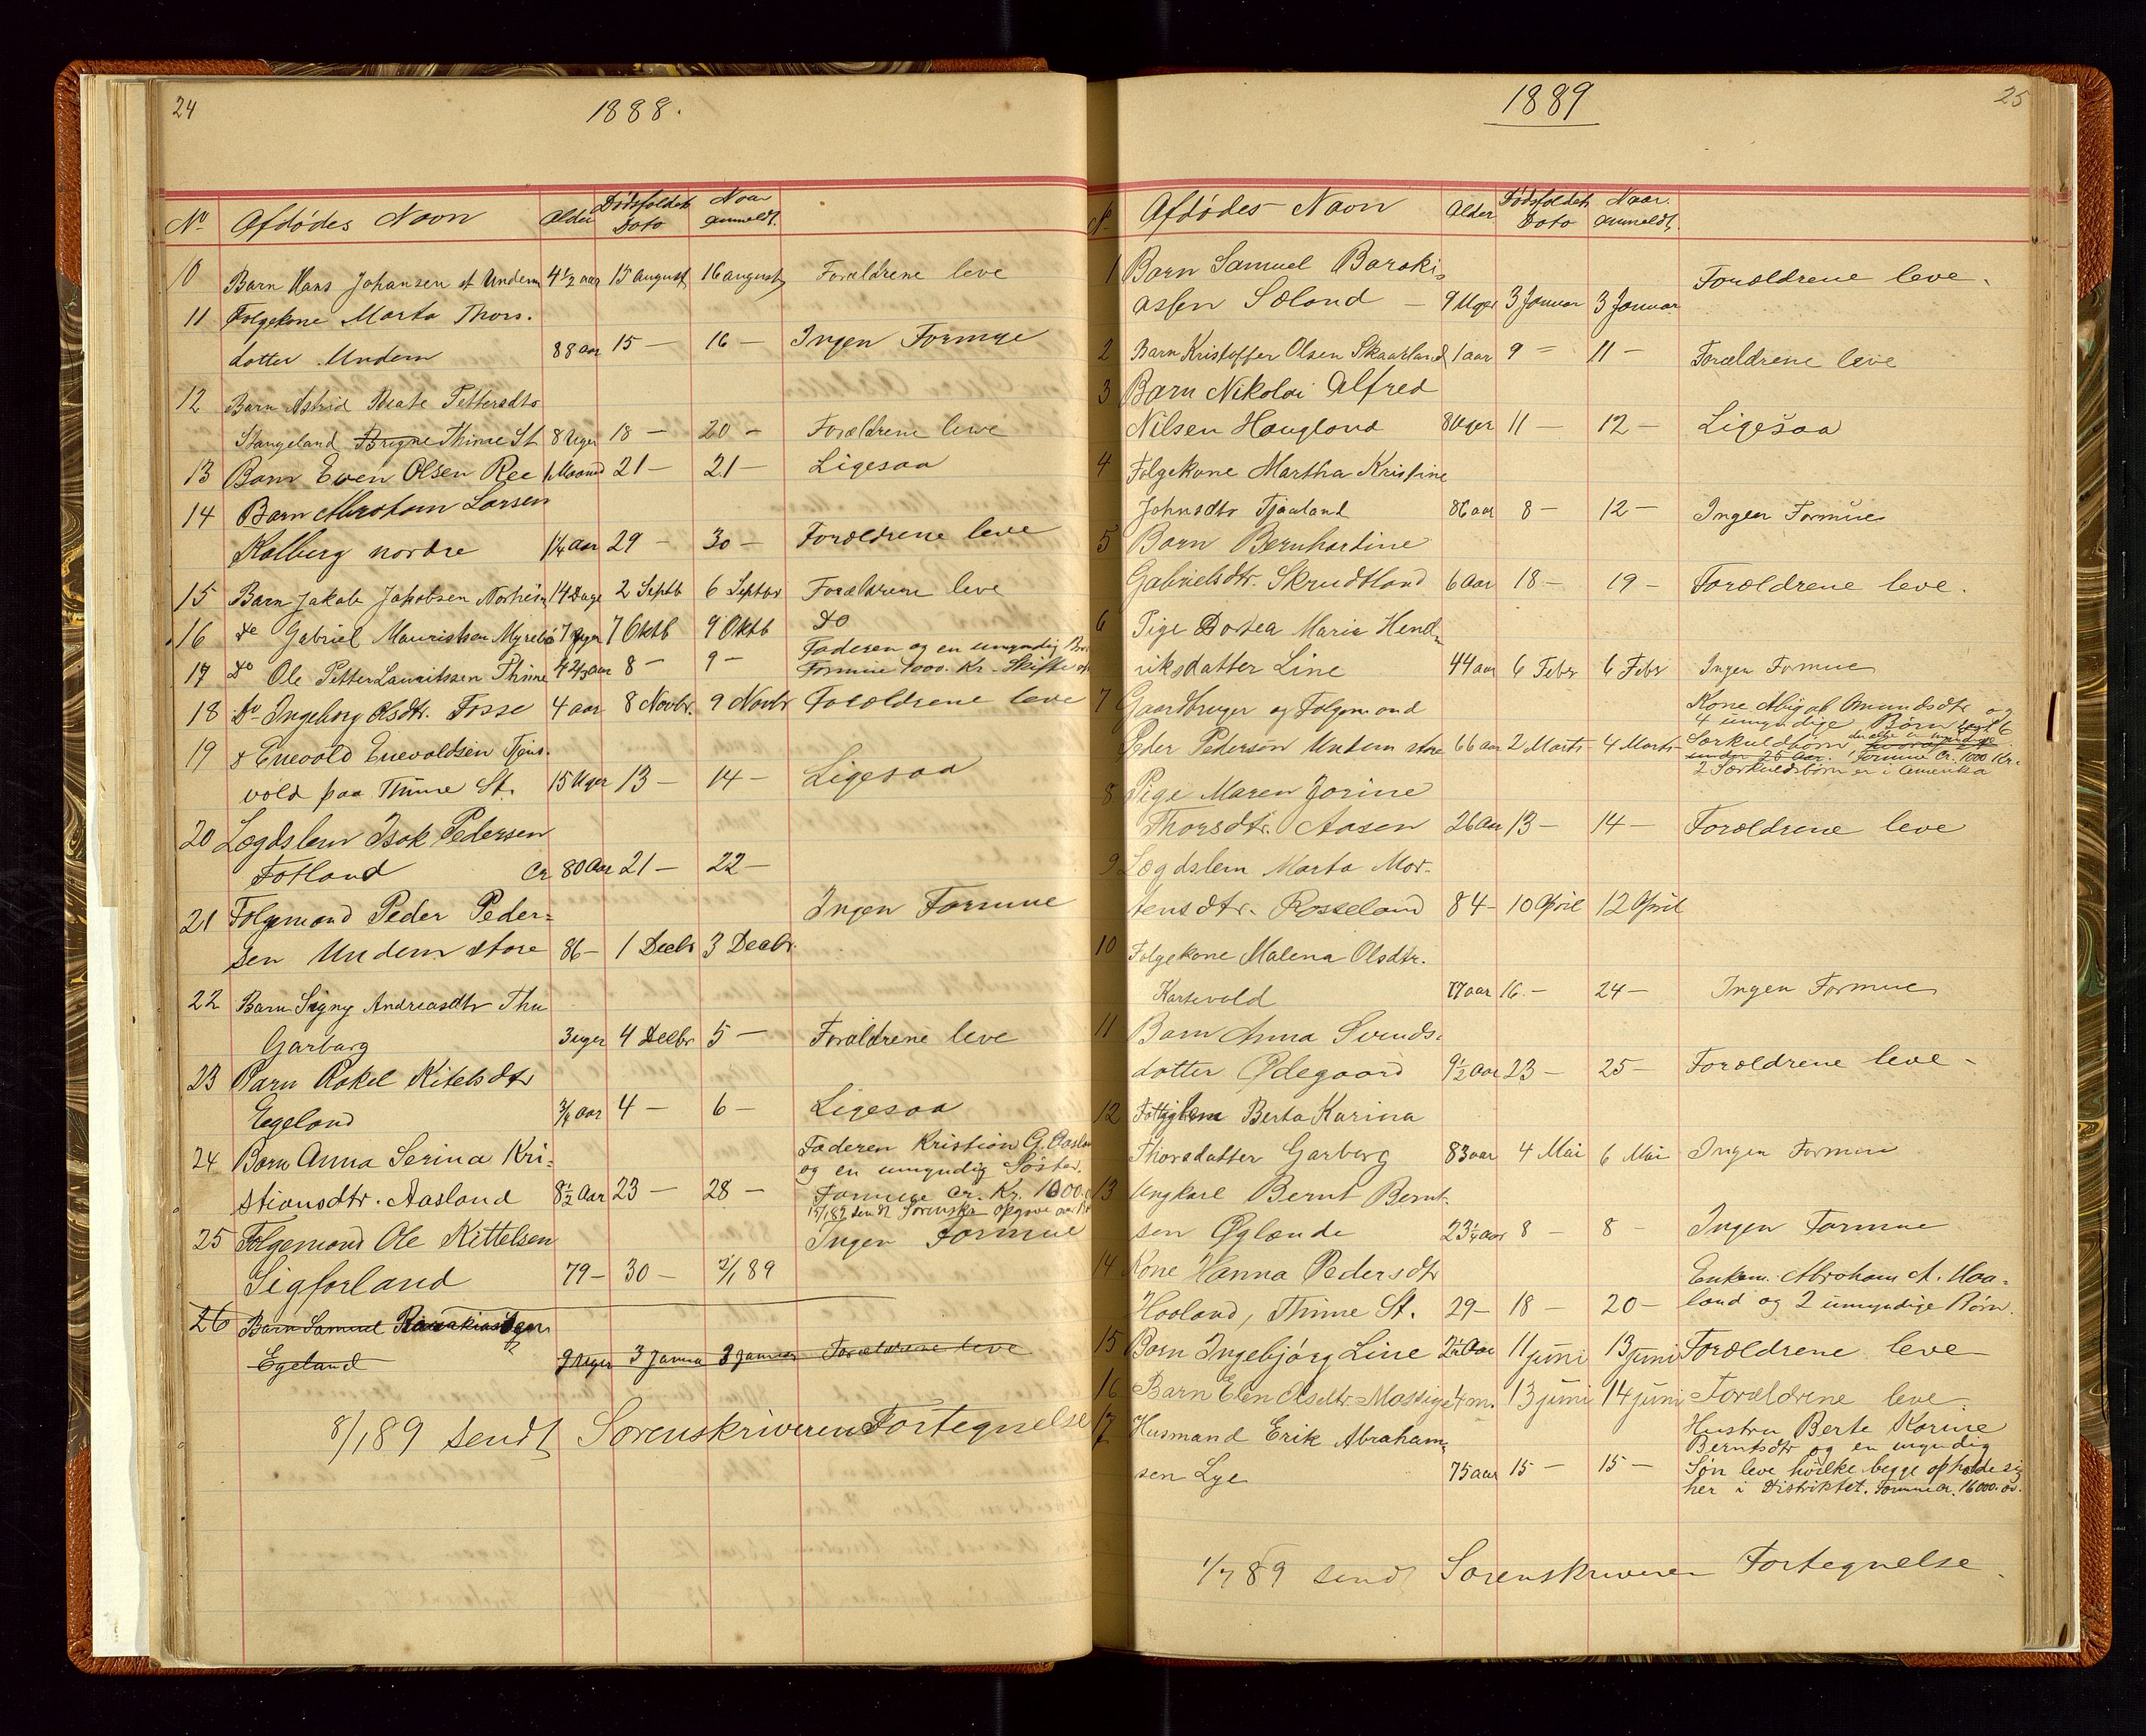 24
1888.
No Afdødes Navn Alder Dødsfaldets Dato Naar anmeldt.
10 Barn Hans Johansen st Undem 4½ aar 15 august 16 august Forældrene leve
11 Folgekone Marta Thors.
datter Undem 88 aar 15 — 16 — Ingen Formue
12 Barn Astrid Beate Pettersdtr
Stangeland Brygne Thime St 8 Uger 18 — 20 — Forældrene leve
13 Barn Even Olsen Ree 1 Maaned 21 — 21 — Ligesaa
14 Barn Abraham Larsen
Kalberg nordre 1¼ Aar 29 — 30 — Forældrene leve
15 Barn Jakob Jakobsen Norheim 14 Dage 2 Septb 6 Septbr Forældrene leve
16 do Gabriel Mauritsen Myrebø 7 Uger 7 Oktb 9 Oktb do
17 do Ole Petter Lauritssen Thime 4⅔ aar 8 — 9 — Faderen og en umyndig
Formue 1000. Kr. Skifte
18 do Ingeborg Olsdtr. Fosse 4 aar 8 Novbr. 9 Novbr Forældrene leve
19 d Enevold Enevoldsen Tjens.
vold paa Thime St. 15 Uger 13 — 14 — Ligesaa
20 Lægdslem Isak Pedersen
Fotland Cr 80 Aar 21 — 22 —
21 Folgemand Peder Peder= Ingen Formue
sen Undem store 86 — 1 Decbr 3 Decbr.
22 Barn Signy Andreasdtr Thu
Garborg 3 uger 4 Decbr 5 — Forældrene leve
23 Barn Rakel Kitelsdtr
Egeland ¾ aar 4 — 6 — Ligesaa
24 Barn Anna Serina Kri= Faderen Kristian G. Aasland
og en umyndig Søster.
stiansdtr. Aasland 8½ Aar 23 — 28 — Formue Cr. Kr. 1000.
25 Folgemand Ole Kittelsen Ingen Formue
Sigforland 79 — 30 — 2/1 89
26 Barn Samuel Barakiassen
Egeland 9 Uger 3 Janua 3 Januar Forældrene leve
8/1 89 sendt Sorenskriveren Fortegnelse
25
1889
No Afdødes Navn Alder Dødsfaldets Dato Naar anmeldt.
1 Barn Samuel Baraki= Forældrene leve.
assen Sæland — 9 Uger 3 Januar 3 Januar
2 Barn Kristoffer Olsen Skaarland 1 aar 9 — 11 — Forældrene leve
3 Barn Nikolai Alfred
Nilsen Haugland 8 Uger 11 — 12 — Ligesaa
4 Folgekone Martha Kristine
Johnsdtr Tjaaland 86 aar 8 — 12 — Ingen Formue
5 Barn Bernhardine
Gabrielsdtr. Skrudtland 6 Aar 18 — 19 — Forældrene leve.
6 Pige Dortea Maria Hend=
riksdatter Line 44 aar 6 Febr 6 Febr Ingen Formue
7 Gaardbruger og Folgemand Kone Abigal Omundsdtr og
4 umyndige Børn samt 6
Peder Pederson Undem store 66 aar 2 Marts 4 Marts Særkuldbørn der alle er myndige
under 25 Aar. Formue Cr. 1000 Kr.
2 Særkuldsbørn er i Amerika
8 Pige Maren Jorine
Thorsdtr. Aasen 26 Aar 13 — 14 — Forældrene leve
9 Lægdslem Marta Mor.
tensdtr. Rosseland 84 — 10 April 12 April
10 Folgekone Malena Olsdtr.
Karsevold 77 aar 16. — 24 — Ingen Formue
11 Barn Anna Svends.
datter Ødegaard 9½ Aar 23 — 25 — Forældrene leve —
12 Fattiglem Berta Karina
Thorsdatter Garborg 83 aar 4 Mai 6 Mai Ingen Formue
13 Ungkarl Bernt Bernt.
sen Øglænde 23¼ aar 8 — 8 — Ingen Formue
14 Kone Hanna Pedersdtr Enkem. Abraham A. Haa=
Haaland, Thime St. 29 — 18 — 20 — land og 2 umyndige Børn.
15 Barn Ingebjørg Line 2½ Aar 11 juni 13 juni Forældrene leve
16 Barn Elen Olsdtr Mossige 4 m. 13 juni 14 juni Forældrene leve.
17 Husmand Erik Abraham= Hustru Berte Karine
Berntsdtr og en umyndig
sen Lye 75 aar 15 — 15 — Søn leve hvilke begge opholde sig
her i Distriktet. Formue Cr. 16000.
1/7 89 sendt Sorenskriveren Fortegnelse.